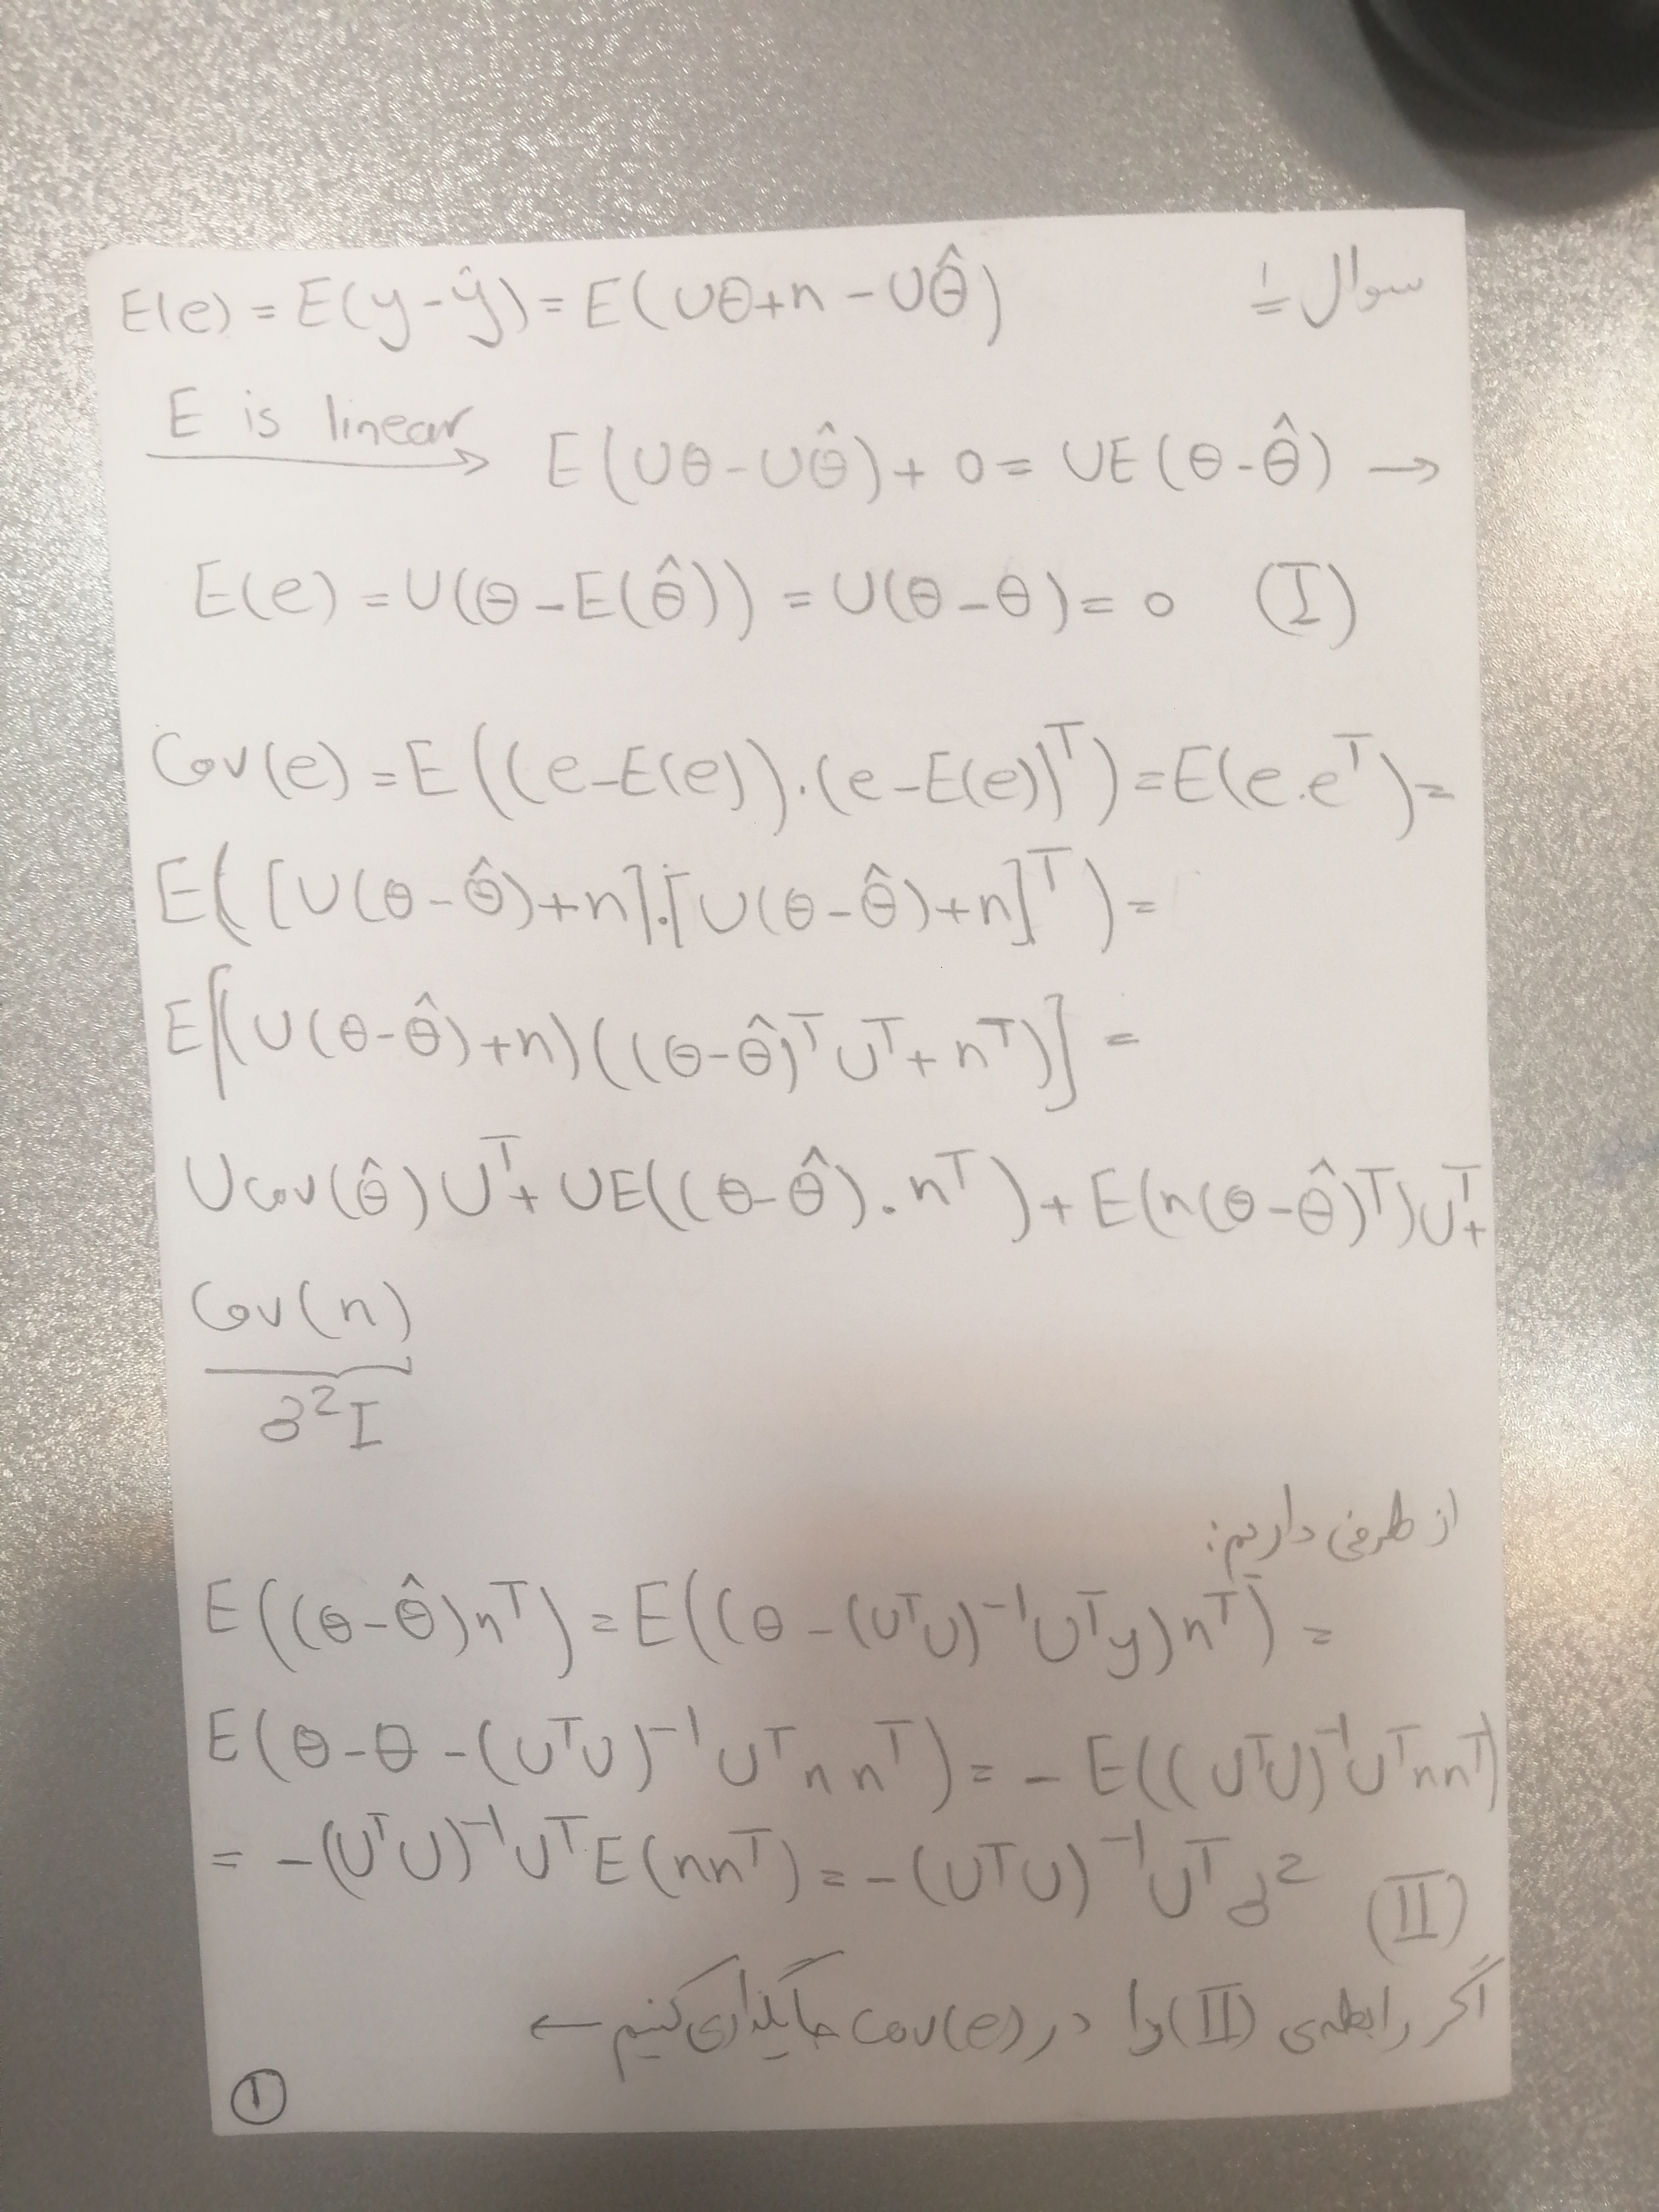 سوال ۱=
E(e) = E(y-ŷ) = E(Uθ+n - Uθ̂)
E is linear → E(Uθ-Uθ̂) + 0 = UE(θ-θ̂) →
E(e) = U(θ-E(θ̂)) = U(θ-θ) = 0 (I)
Cov(e) = E((e-E(e)).(e-E(e))ᵀ) = E(e.eᵀ) =
E([U(θ-θ̂)+n].[U(θ-θ̂)+n]ᵀ) =
E[(U(θ-θ̂)+n)((θ-θ̂)ᵀUᵀ+nᵀ)] =
Ucov(θ̂)Uᵀ + UE((θ-θ̂).nᵀ) + E(n(θ-θ̂)ᵀ)Uᵀ +
Cov(n)
σ²I
از طرفی داریم:
E((θ-θ̂)nᵀ) = E((θ-(UᵀU)⁻¹Uᵀy)nᵀ) =
E(θ-θ-(UᵀU)⁻¹Uᵀnnᵀ) = -E((UᵀU)⁻¹Uᵀnnᵀ)
= -(UᵀU)⁻¹UᵀE(nnᵀ) = -(UᵀU)⁻¹Uᵀσ² (II)
اگر رابطه‌ی (II) را در cov(e) جایگذاری کنیم ←
①